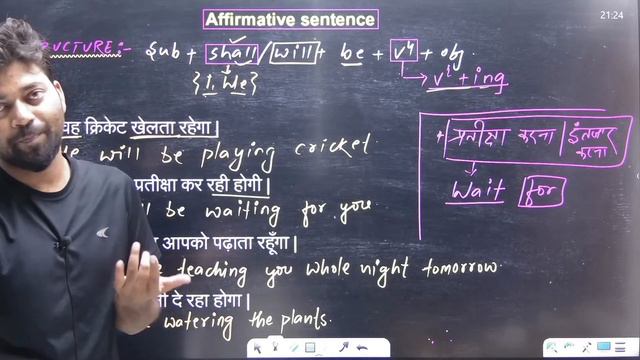 Affirmative sentence
21:24
UCTURE:- Sub + shall / will + be + v⁴ + obj.
{I, We} → v¹ + ing
वह क्रिकेट खेलता रहेगा |
He will be playing cricket.
प्रतीक्षा कर रही होगी |
ll be waiting for you.
आपको पढ़ाता रहूँगा |
be teaching you whole night tomorrow.
नी दे रहा होगा |
watering the plants.
* प्रतीक्षा करना / इंतजार करना
Wait for